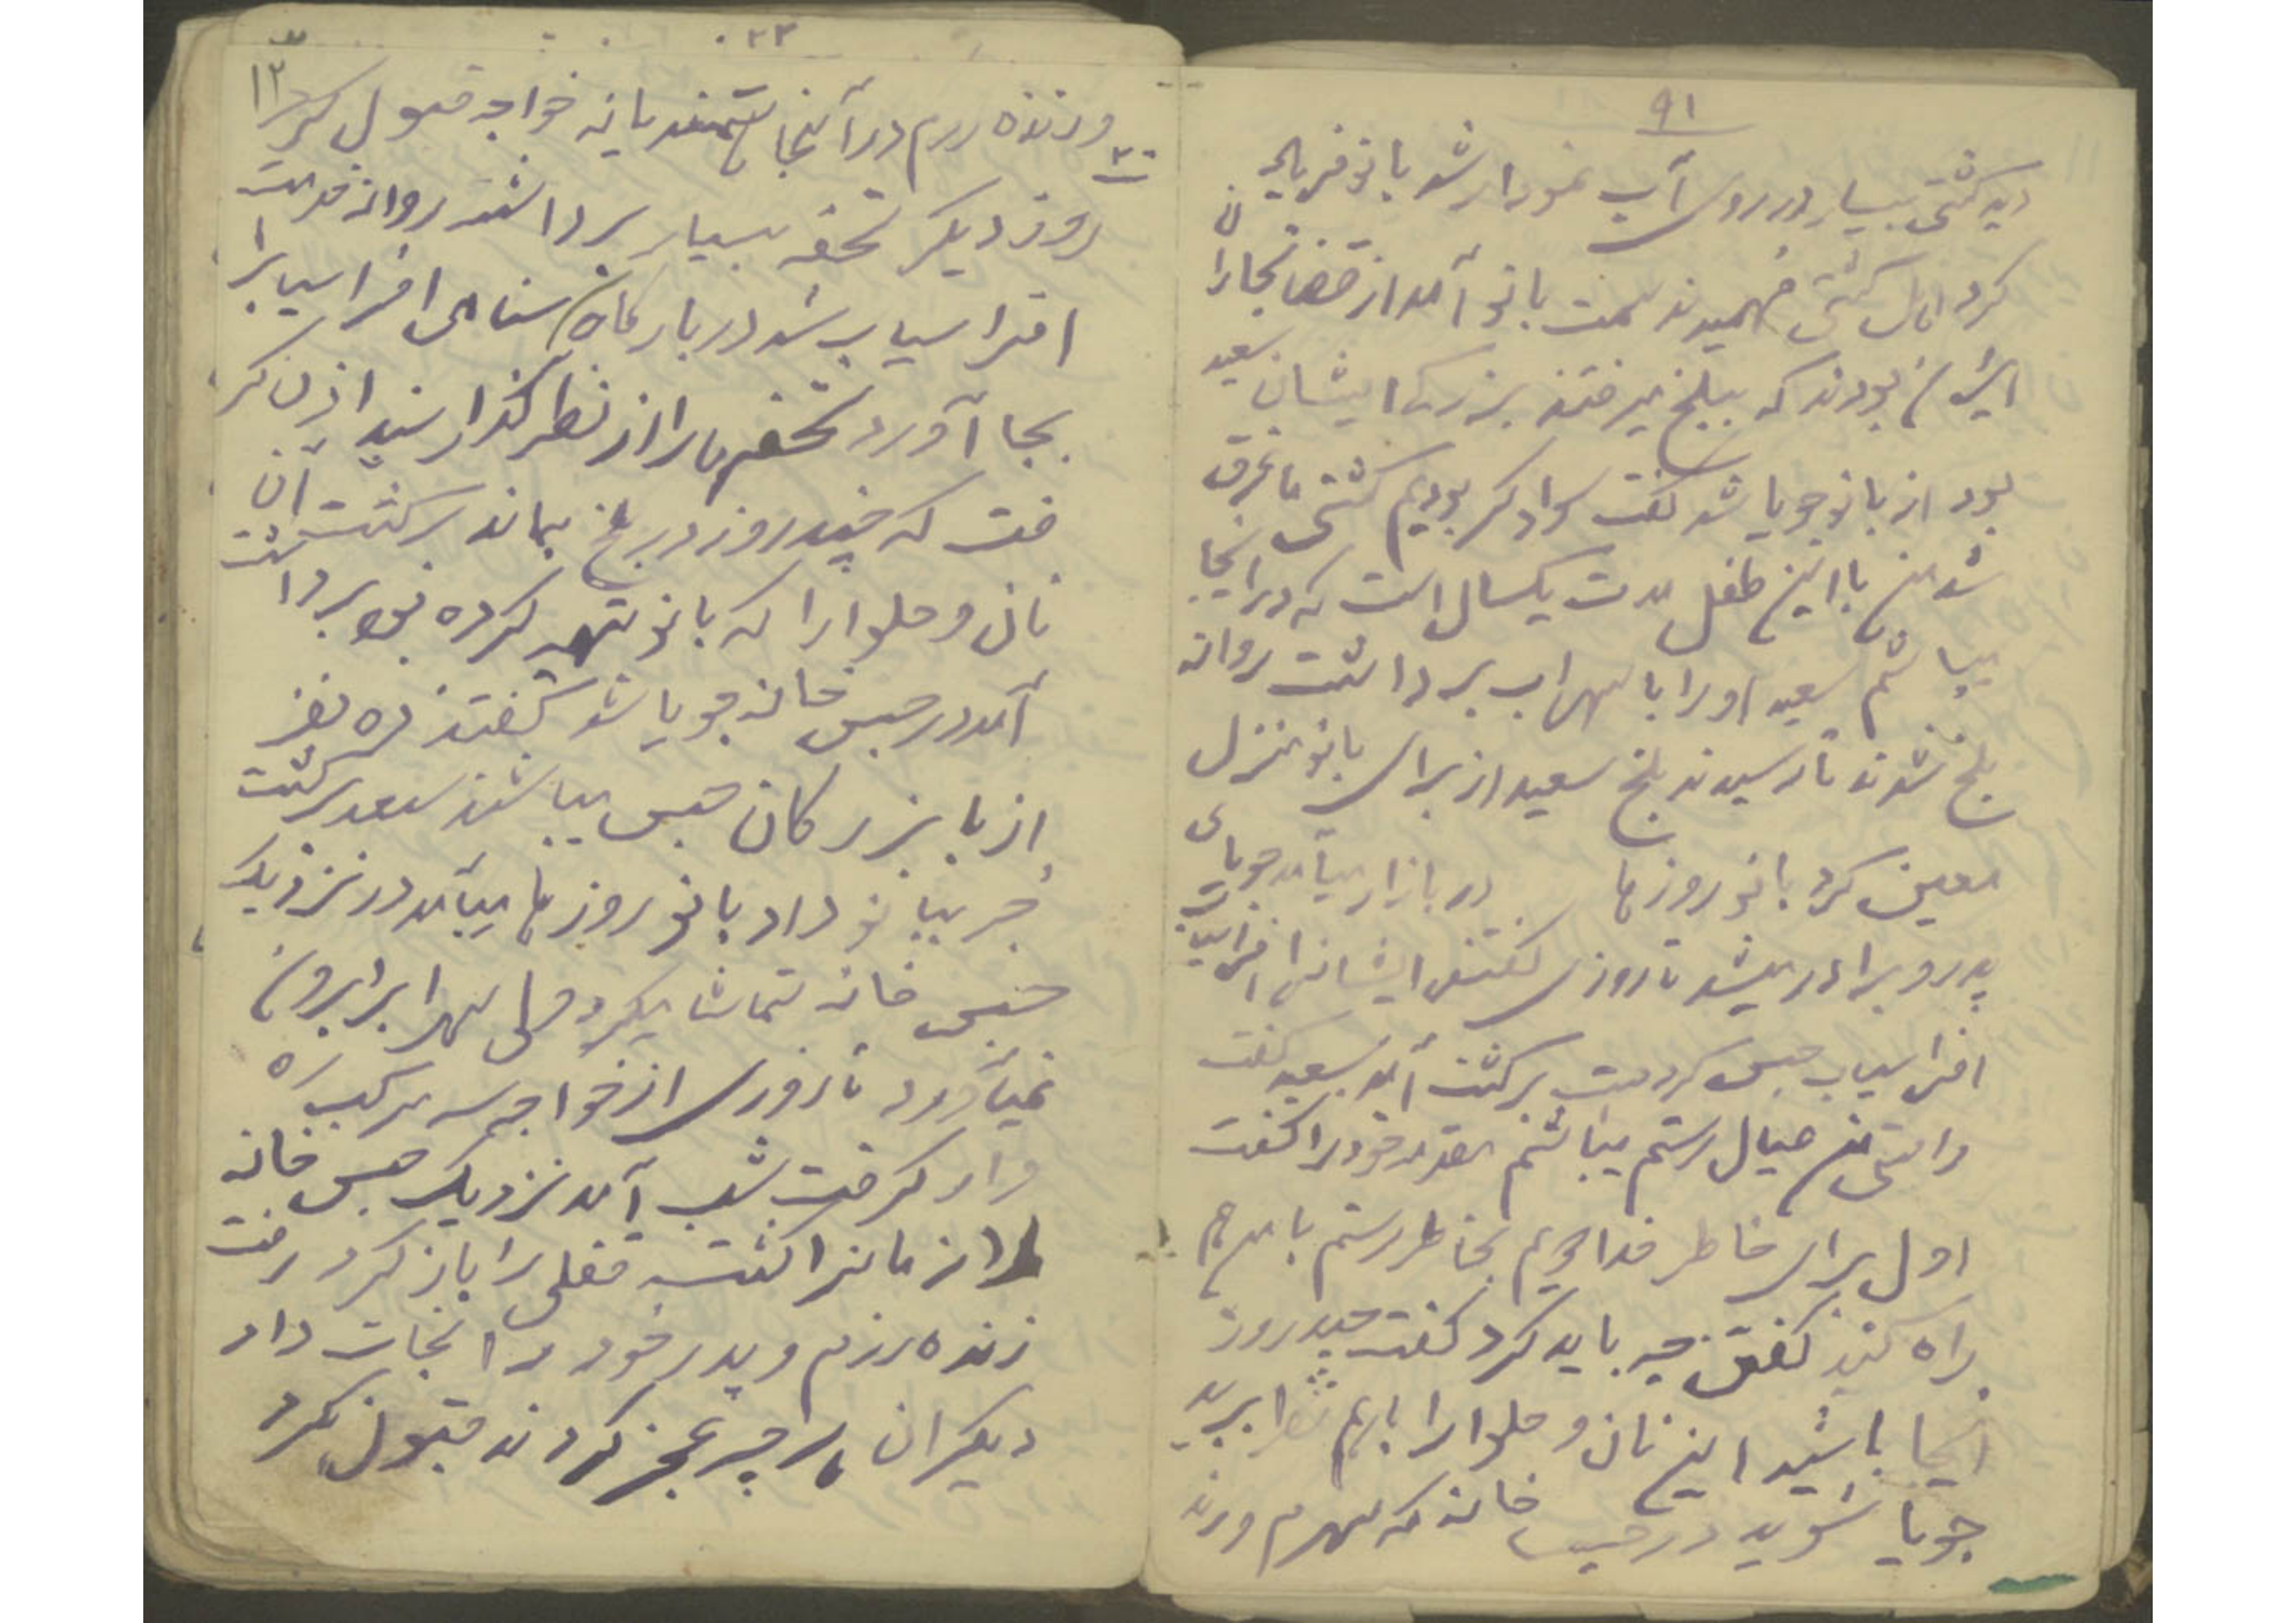 ۹۱
دید کشتی بسیار در روی آب نمودار شد بانو فریاد
کرد اهل کشتی فهمیدند سمت بانو آمد از قضا تجاران
ایران بودند که ببلخ میرفتند بزرگ ایشان سعید
بود از بانو جویا شد گفت سوداگر بودیم کشتی ما غرق
شد من با این طفل مدت یکسال است که در اینجا
میباشم سعید او را با سهراب برداشت روانه
بلخ شدند تا رسیدند بلخ سعید از برای بانو منزل
معین کرد بانو روزها در بازار میآمد جویای
پدر و برادر میشد تا روزی گفتند ایشانرا
افراسیاب حبس کرده است برگشت آمد سعید گفت
من عیال رستم میباشم خود را گفت
اول برای خاطر خدا دویم بخاطر رستم با من هم
راه کنید گفتن چه باید کرد گفت چند روز
اینجا باشید این نان و حلوا را ببرید
جویا شوید در حبس خانه که سهرم ورند
۱۳
ورزنده رزم در آنجا هستند یا نه خواجه قبول کرد
روز دیگر تحفه بسیار برداشته روانه خدمت
افراسیاب شد در بارگاه ثنای افراسیاب را
بجا آورد تحفه ها را از نظر گذارنید اذن گر
فت که چند روز در بلخ بماند برگشت آن
نان و حلوا را که بانو تهیه کرده بود برداشت
آمد در حبس خانه جویا شد گفتند ده نفر
از با بزرگان حبس میباشند سعد برگشت
خبر ببانو داد بانو روزها میآمد در نزدیک
حبس خانه تماشا میکرد ولی سهراب را بیرون
نمیآورد تا روزی از خواجه سه مرکب راه
وار گرفت شب آمد نزدیک حبس خانه
در از مانرا کشت قفلی را باز کرد رفت
زنده رزم و پدر خود را نجات داد
دیگران هر چه عجز کردند قبول نکرد